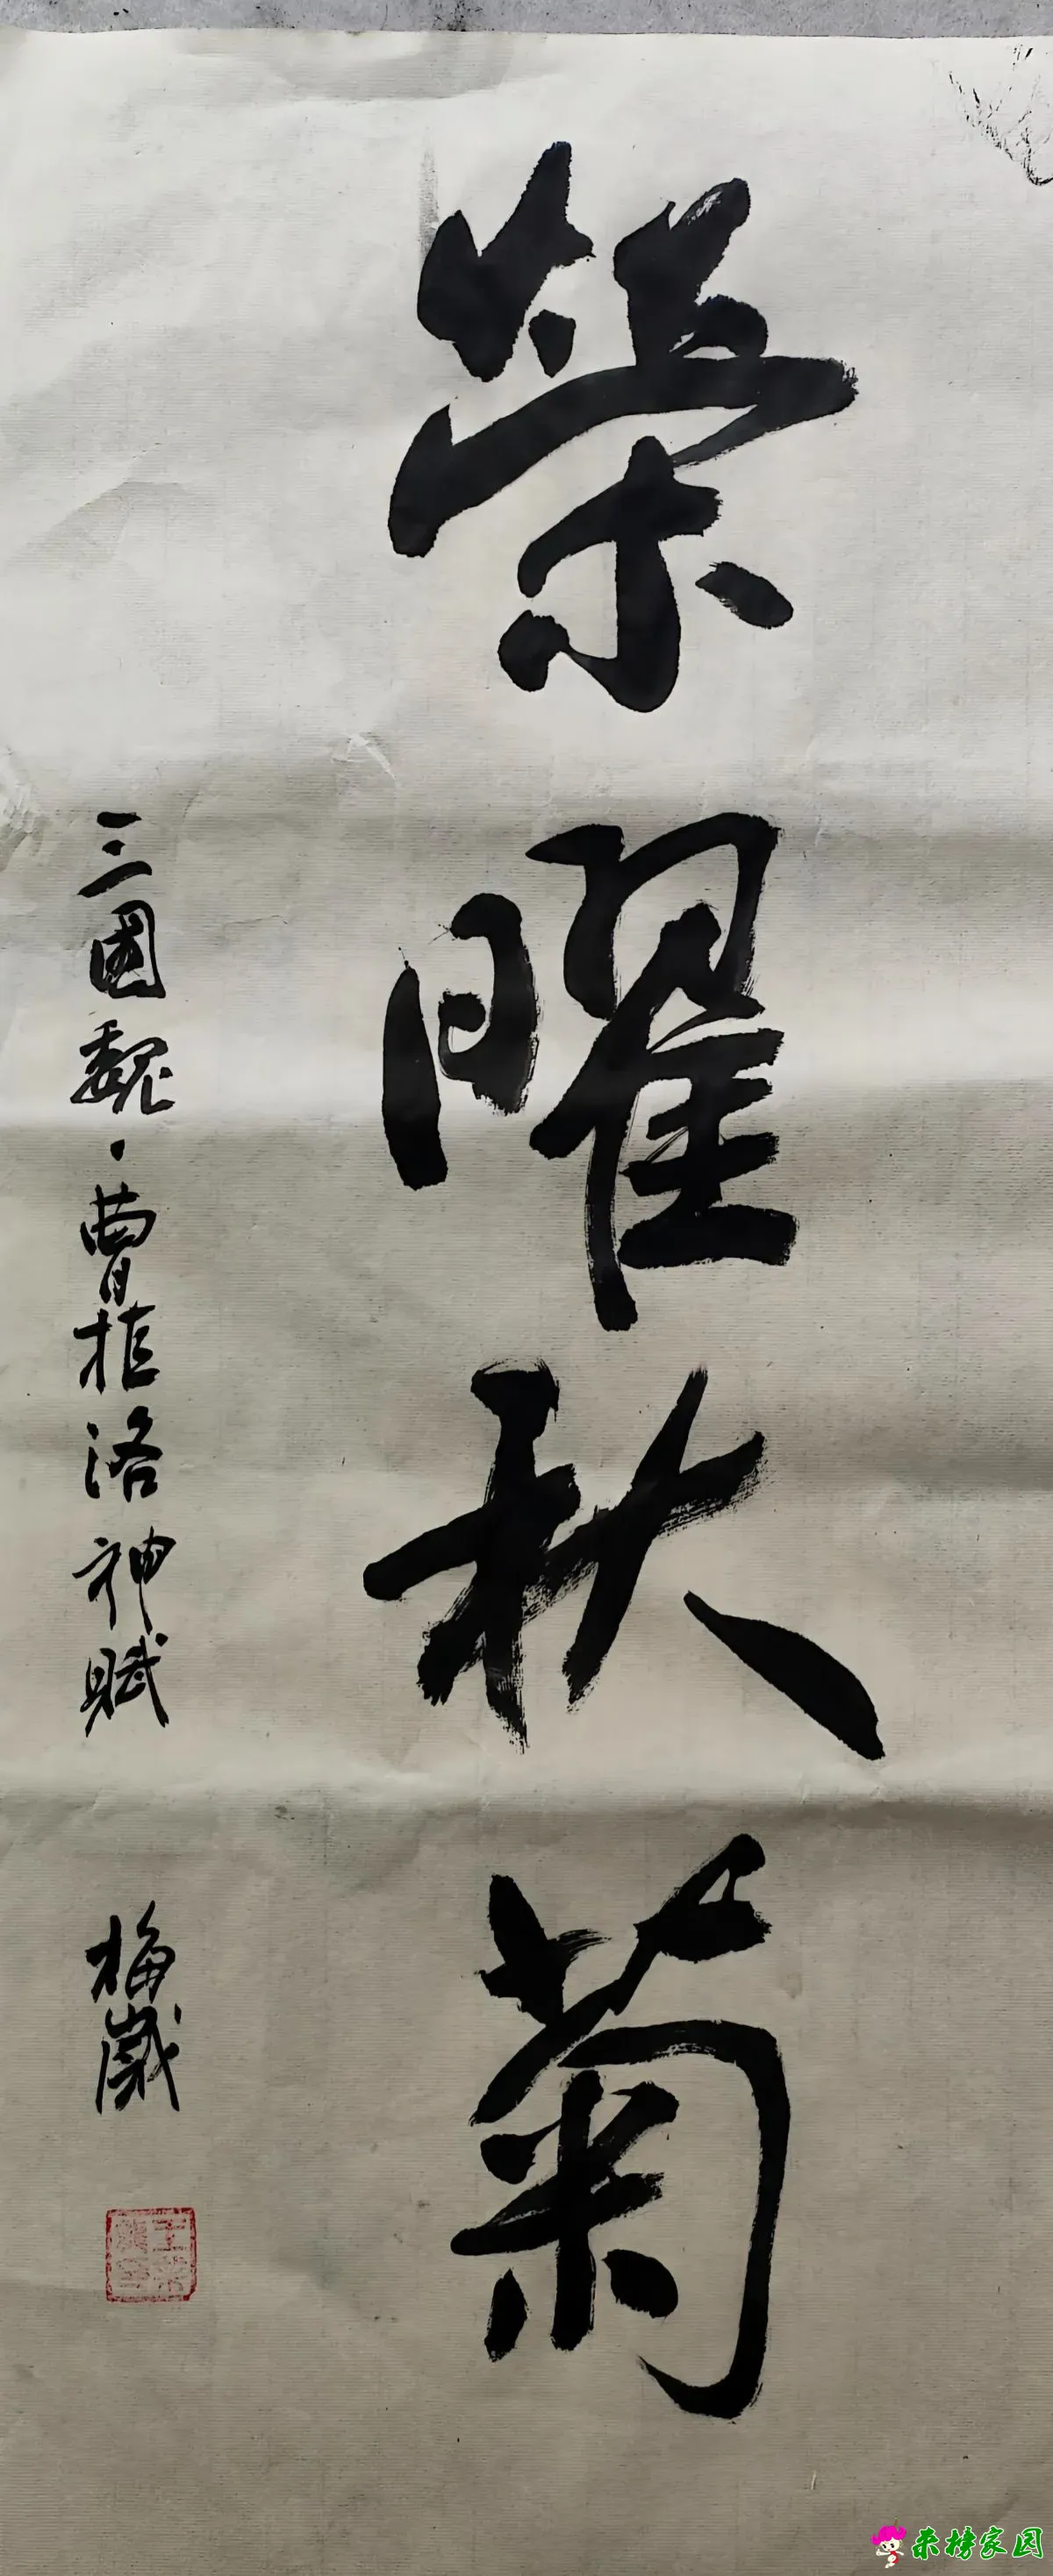 榮曜秋菊
三國魏·曹植洛神賦
梅歲
来榜家园